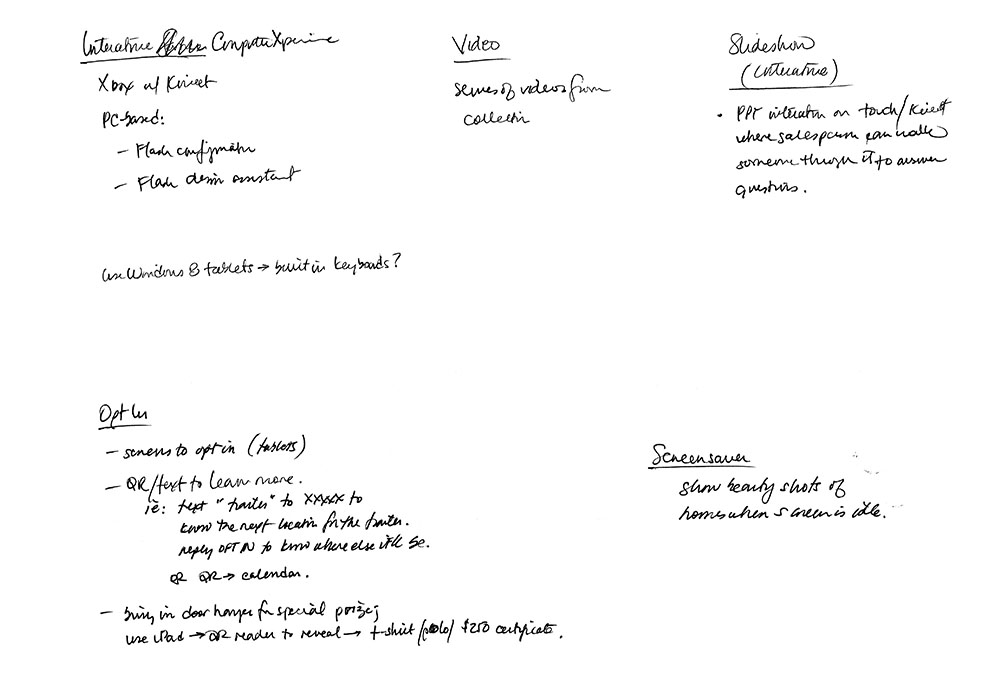 Interactive Computer Xperience
Xbox w/ Kinect
PC-based:
– Flash configurator
– Flash design assistant
use Windows 8 tablets → built in keyboards?
Video
series of videos from
collection
Slideshow
(interactive)
• PPT interaction on touch/Kinect
where salesperson can walk
someone through it to answer
questions.
Opt In
– screens to opt in (tablets)
– QR/text to learn more.
ie: text "trailer" to XXXXX to
know the next location for the trailer.
reply OPT IN to know where else it'll be.
OR QR → calendar.
– bring in door hanger for special prize;
use iPad → QR reader to reveal → t-shirt/polo/$250 certificate.
Screensaver
show beauty shots of
homes when screen is idle.